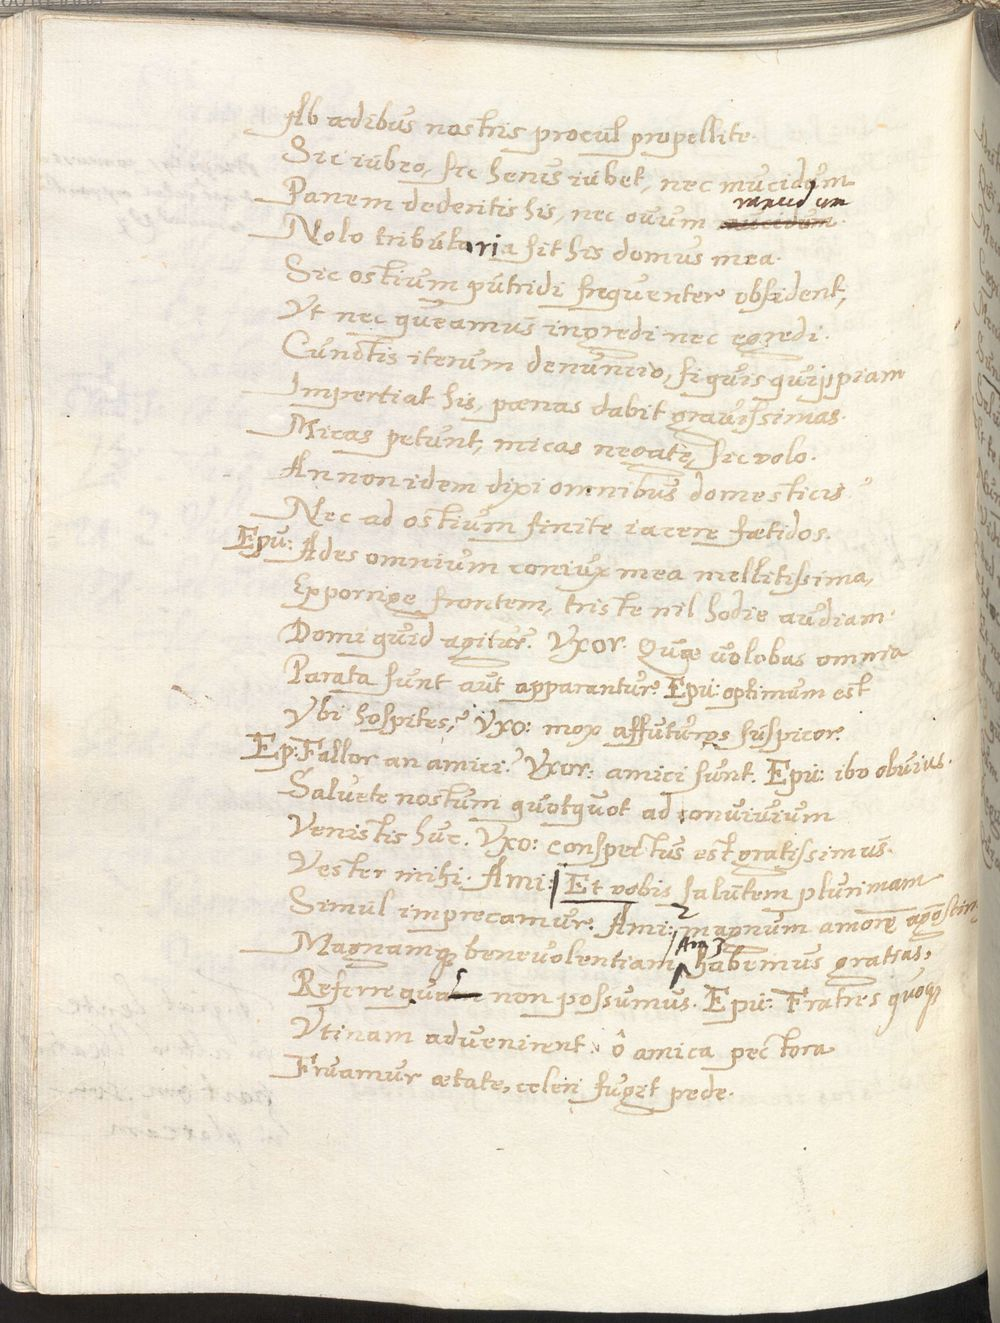 Ab ædibus nostris procul propellite.
Sic iubeo, sic herus iubet, nec mucidum
Panem dederitis his, nec ouum rancidum
Nolo tributaria sit his domus mea.
Sic ostium putridi frequenter obsident,
Vt nec queamus ingredi nec egredi.
Cunctis iterum denuncio, si quis quippiam
Impertiat his, pœnas dabit grauissimas.
Micas petunt, micas negate, sic volo.
An non idem dixi omnibus domesticis?
Nec ad ostium sinite iacere fœtidos.
Epu: Ades omnium coniux mea mellitissima,
Exporrige frontem, triste nil hodie audiam.
Domi quid agitur? Vxor. Quæ uolebas omnia
Parata sunt aut apparantur. Epu: optimum est
Vbi hospites? Vxo: mox affuturos suspicor.
Ep: Fallor an amici? Vxor: amici sunt. Epu: ibo obuius.
Saluete nostrum quotquot ad conuiuium
Venistis huc. Vxo: conspectus est gratissimus
Vester mihi. Ami: Et vobis salutem plurimam
Simul imprecamur. Ami: 2 magnum amorē
Magnamq; beneuolentiam, Am 3 habemus gratias,
Referre non possumus. Epu: Fratres quoq;
Vtinam advenirent, ô amica pectora
Fruamur ætate, celeri fuget pede.